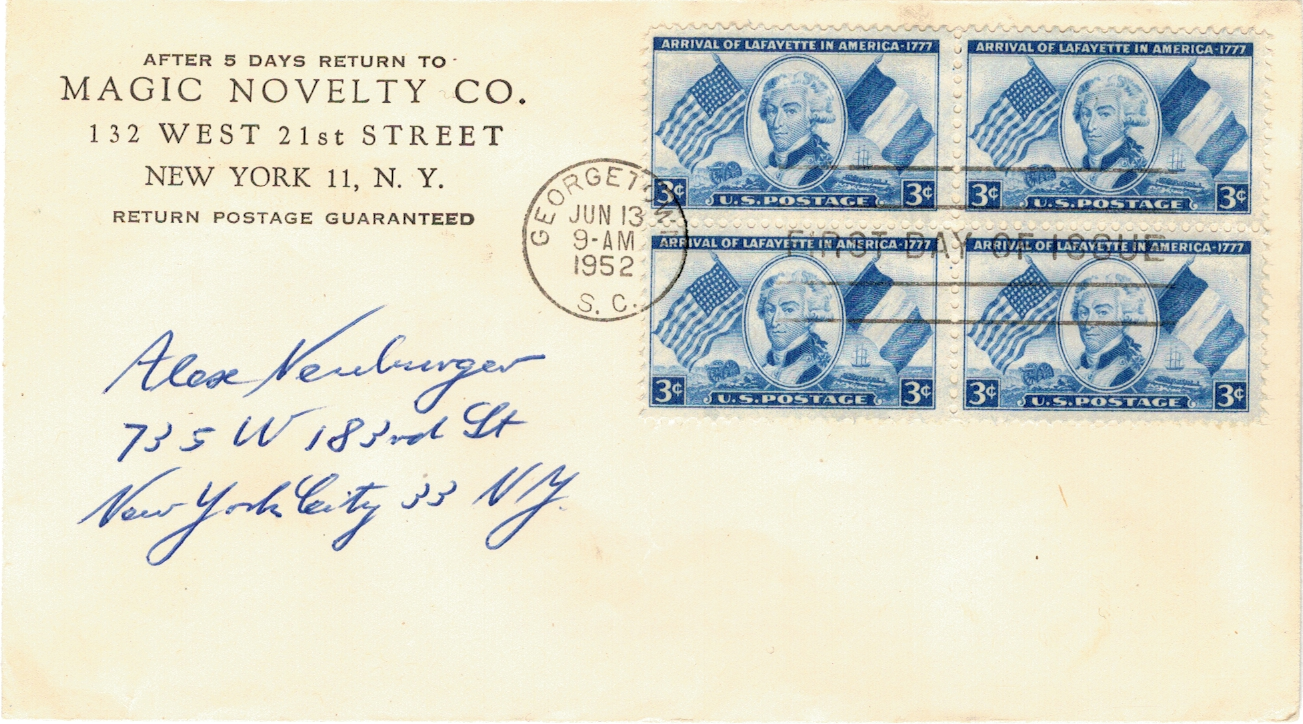 AFTER 5 DAYS RETURN TO
MAGIC NOVELTY CO.
132 WEST 21st STREET
NEW YORK 11, N. Y.
RETURN POSTAGE GUARANTEED
ARRIVAL OF LAFAYETTE IN AMERICA-1777
3¢ U.S. POSTAGE 3¢
ARRIVAL OF LAFAYETTE IN AMERICA-1777
3¢ U.S. POSTAGE 3¢
ARRIVAL OF LAFAYETTE IN AMERICA-1777
3¢ U.S. POSTAGE 3¢
ARRIVAL OF LAFAYETTE IN AMERICA-1777
3¢ U.S. POSTAGE 3¢
GEORGETOWN
JUN 13
9-AM
1952
S. C.
FIRST DAY OF ISSUE
Alex Neuburger
735 W 183rd St
New York City 33 NY.